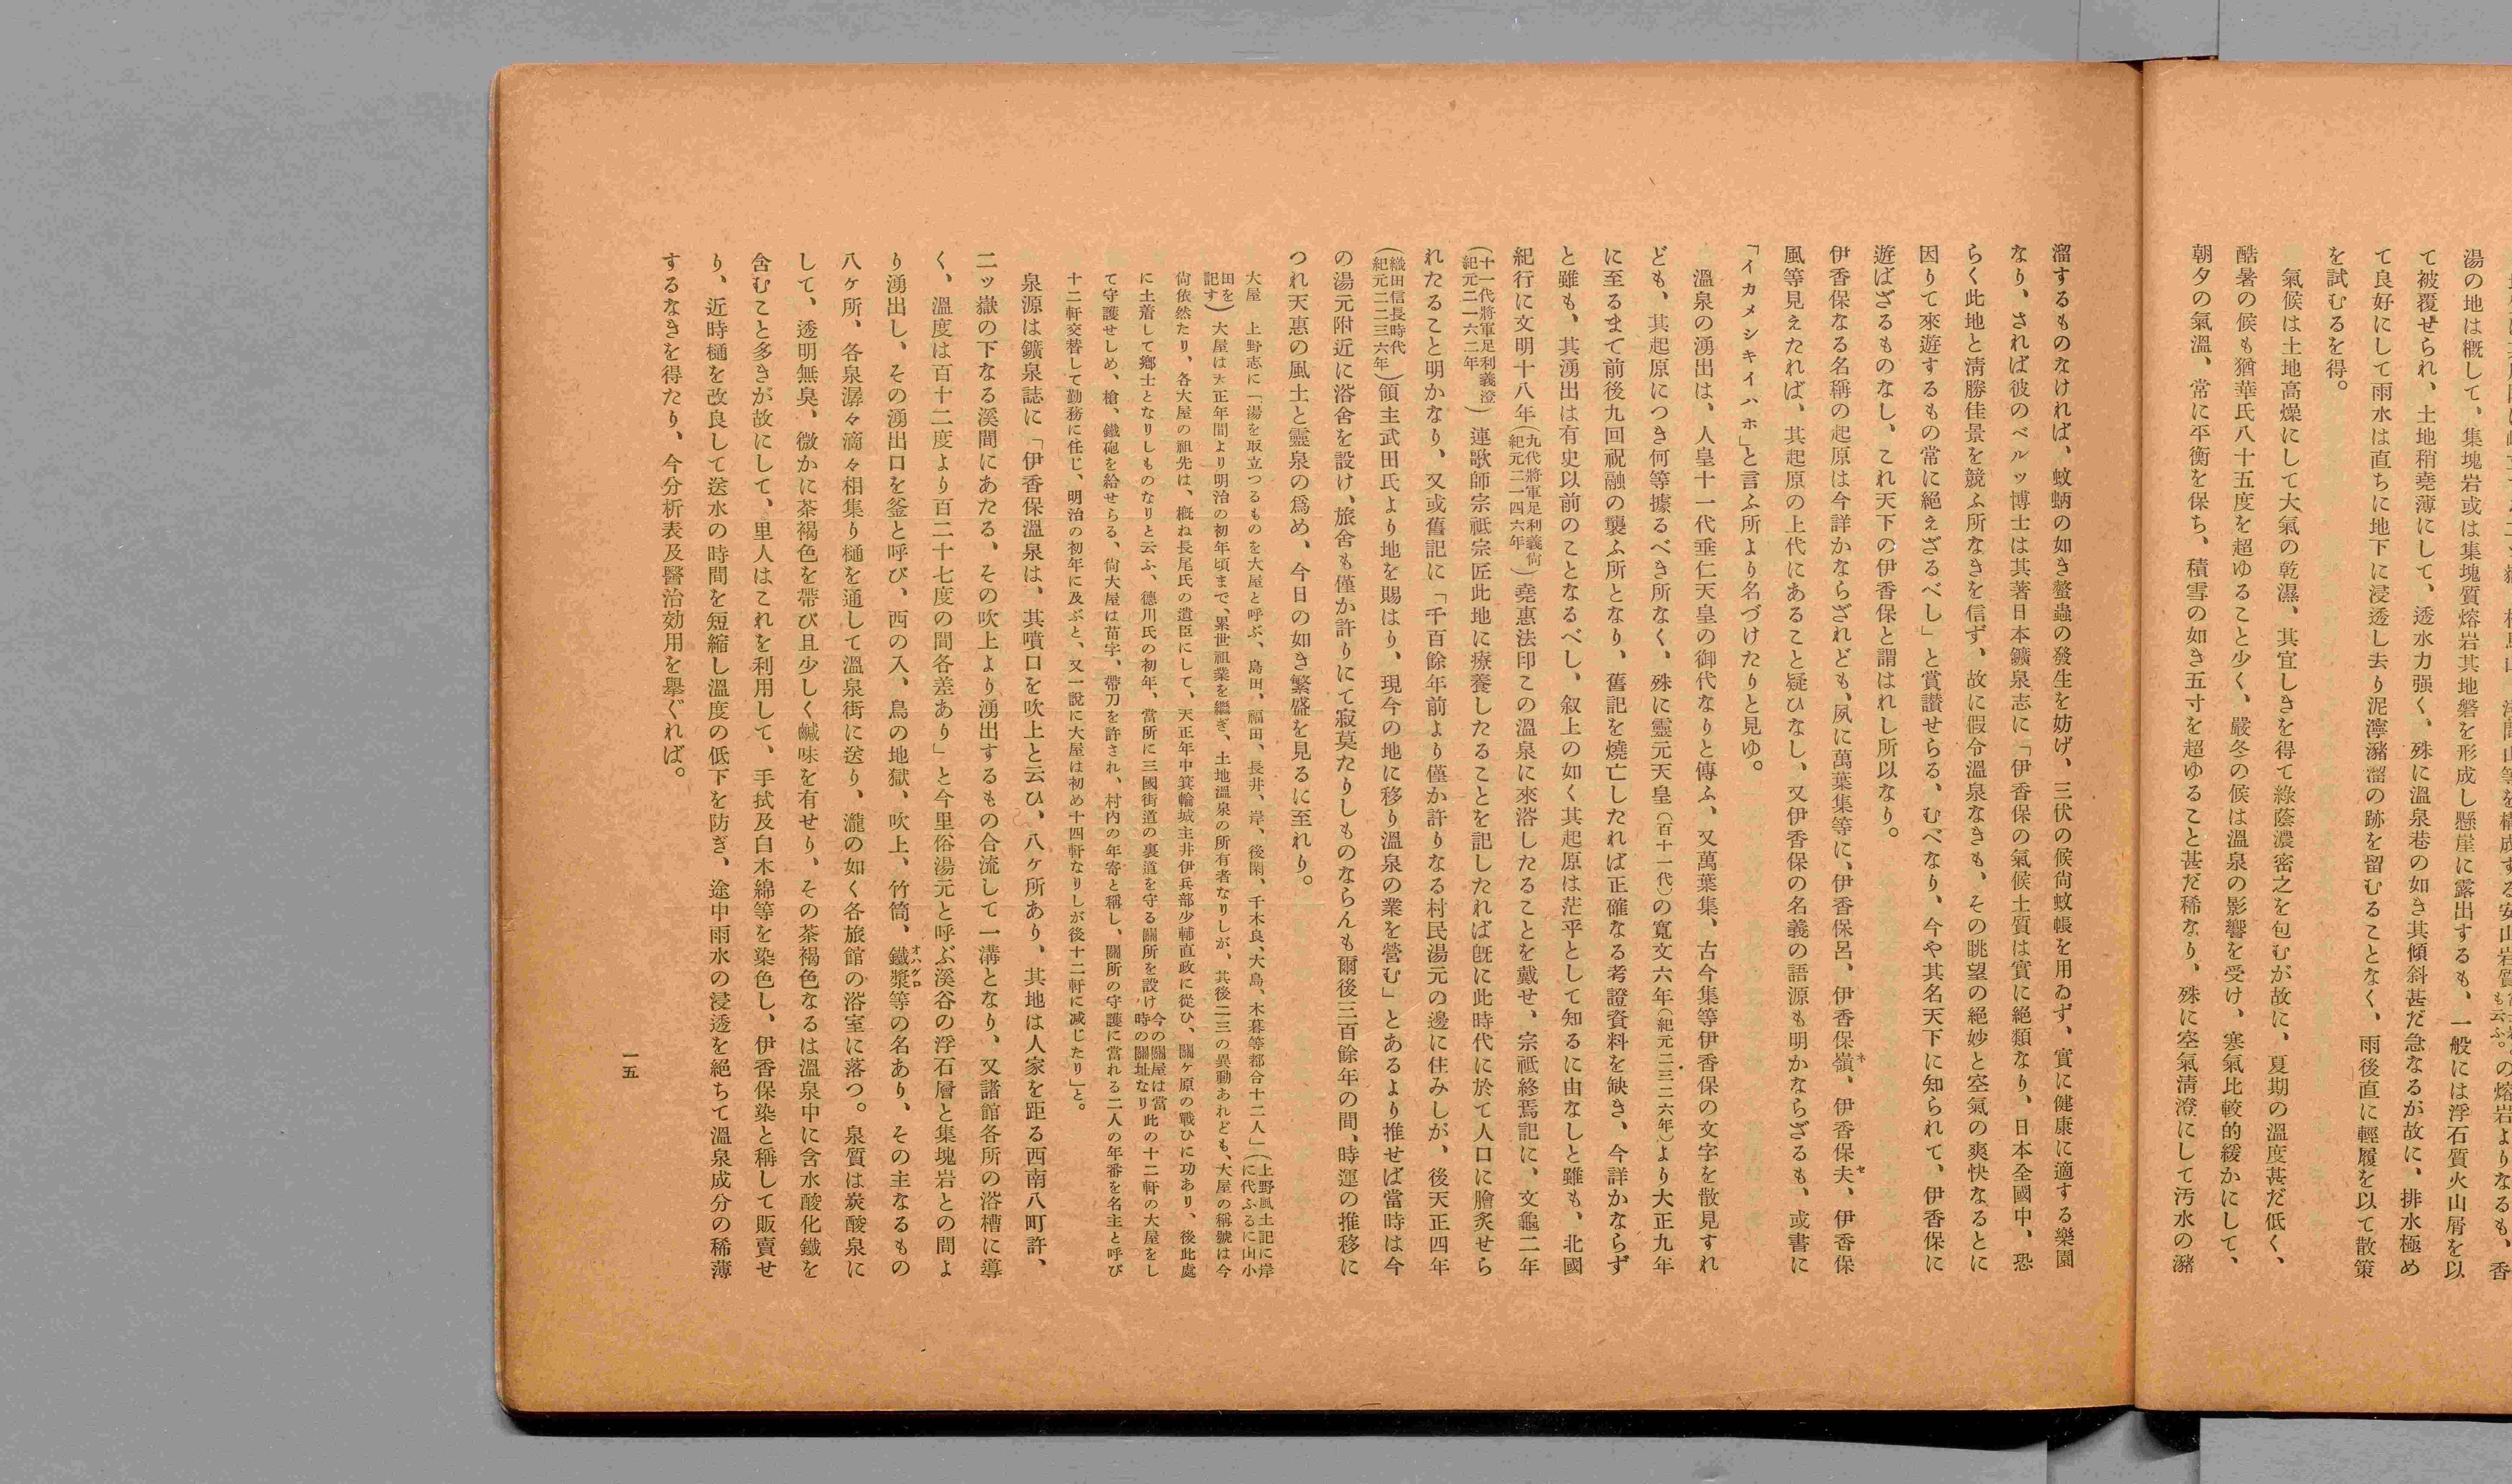 湯の地は概して、集塊岩或は集塊質熔岩其地磐を形成し懸崖に露出するも、一般には浮石質火山屑を以
て被覆せられ、土地稍堯薄にして、透水力强く、殊に溫泉巷の如き其傾斜甚だ急なるが故に、排水極め
て良好にして雨水は直ちに地下に浸透し去り泥濘瀦溜の跡を留むることなく、雨後直に輕履を以て散策
を試むるを得。
氣候は土地高燥にして大氣の乾濕、其宜しきを得て綠蔭濃密之を包むが故に、夏期の溫度甚だ低く、
酷暑の候も猶華氏八十五度を超ゆること少く、嚴冬の候は溫泉の影響を受け、寒氣比較的緩かにして、
朝夕の氣溫、常に平衡を保ち、積雪の如き五寸を超ゆること甚だ稀なり、殊に空氣淸澄にして汚水の瀦
溜するものなければ、蚊蚋の如き螫蟲の發生を妨げ、三伏の候尙蚊帳を用ゐず、實に健康に適する樂園
なり、されば彼のベルッ博士は其著日本鑛泉志に「伊香保の氣候土質は實に絕類なり、日本全國中、恐
らく此地と淸勝佳景を競ふ所なきを信ず、故に假令溫泉なきも、その眺望の絕妙と空氣の爽快なるとに
因りて來遊するもの常に絕えざるべし」と賞讃せらる、むべなり、今や其名天下に知られて、伊香保に
遊ばざるものなし、これ天下の伊香保と謂はれし所以なり。
伊香保なる名稱の起原は今詳かならざれども、夙に萬葉集等に、伊香保呂、伊香保嶺、伊香保夫、伊香保
風等見えたれば、其起原の上代にあること疑ひなし、又伊香保の名義の語源も明かならざるも、或書に
「イカメシキイハホ」と言ふ所より名づけたりと見ゆ。
溫泉の湧出は、人皇十一代垂仁天皇の御代なりと傳ふ、又萬葉集、古今集等伊香保の文字を散見すれ
ども、其起原につき何等據るべき所なく、殊に靈元天皇(百十一代)の寬文六年(紀元二三二六年)より大正九年
に至るまて前後九回祝融の襲ふ所となり、舊記を燒亡したれば正確なる考證資料を缺き、今詳かならず
と雖も、其湧出は有史以前のことなるべし、叙上の如く其起原は茫乎として知るに由なしと雖も、北國
紀行に文明十八年(九代將軍足利義尙紀元二一四六年)堯惠法印この溫泉に來浴したることを載せ、宗祗終焉記に、文龜二年
(十一代將軍足利義澄紀元二一六二年)連歌師宗祗宗匠此地に療養したることを記したれば旣に此時代に於て人口に膾炙せら
れたること明かなり、又或舊記に「千百餘年前より僅か許りなる村民湯元の邊に住みしが、後天正四年
(織田信長時代紀元二二三六年)領主武田氏より地を賜はり、現今の地に移り溫泉の業を營む」とあるより推せば當時は今
の湯元附近に浴舍を設け、旅舍も僅か許りにて寂莫たりしものならんも爾後三百餘年の間、時運の推移に
つれ天惠の風土と靈泉の爲め、今日の如き繁盛を見るに至れり。
大屋　上野志に「湯を取立つるものを大屋と呼ぶ、島田、福田、長井、岸、後閑、千木良、大島、木暮等都合十二人」(上野風土記に岸に代ふるに山小
田を記す)大屋は天正年間より明治の初年頃まで、累世祖業を繼ぎ、土地溫泉の所有者なりしが、其後二三の異動あれども、大屋の稱號は今
尙依然たり、各大屋の祖先は、槪ね長尾氏の遺臣にして、天正年中箕輪城主井伊兵部少輔直政に從ひ、關ヶ原の戰ひに功あり、後此處
に土着して鄕士となりしものなりと云ふ、德川氏の初年、當所に三國街道の裏道を守る關所を設け今の關屋は當時の關址なり此の十二軒の大屋をし
て守護せしめ、槍、鐵砲を給せらる、尙大屋は苗字、帶刀を許され、村内の年寄と稱し、關所の守護に當れる二人の年番を名主と呼び
十二軒交替して勤務に任じ、明治の初年に及ぶと、又一說に大屋は初め十四軒なりしが後十二軒に減じたり」と。
泉源は鑛泉誌に「伊香保溫泉は、其噴口を吹上と云ひ、八ヶ所あり、其地は人家を距る西南八町許、
二ッ嶽の下なる溪間にあたる、その吹上より湧出するもの合流して一溝となり、又諸館各所の浴槽に導
く、溫度は百十二度より百二十七度の間各差あり」と今里俗湯元と呼ぶ溪谷の浮石層と集塊岩との間よ
り湧出し、その湧出口を釜と呼び、西の入、鳥の地獄、吹上、竹筒、鐵漿等の名あり、その主なるもの
八ヶ所、各泉潺々滴々相集り樋を通して溫泉街に送り、瀧の如く各旅館の浴室に落つ。泉質は炭酸泉に
して、透明無臭、微かに茶褐色を帶び且少しく鹹味を有せり、その茶褐色なるは溫泉中に含水酸化鐵を
含むこと多きが故にして、里人はこれを利用して、手拭及白木綿等を染色し、伊香保染と稱して販賣せ
り、近時樋を改良して送水の時間を短縮し溫度の低下を防ぎ、途中雨水の浸透を絕ちて溫泉成分の稀薄
するなきを得たり、今分析表及醫治効用を擧ぐれば。
一五